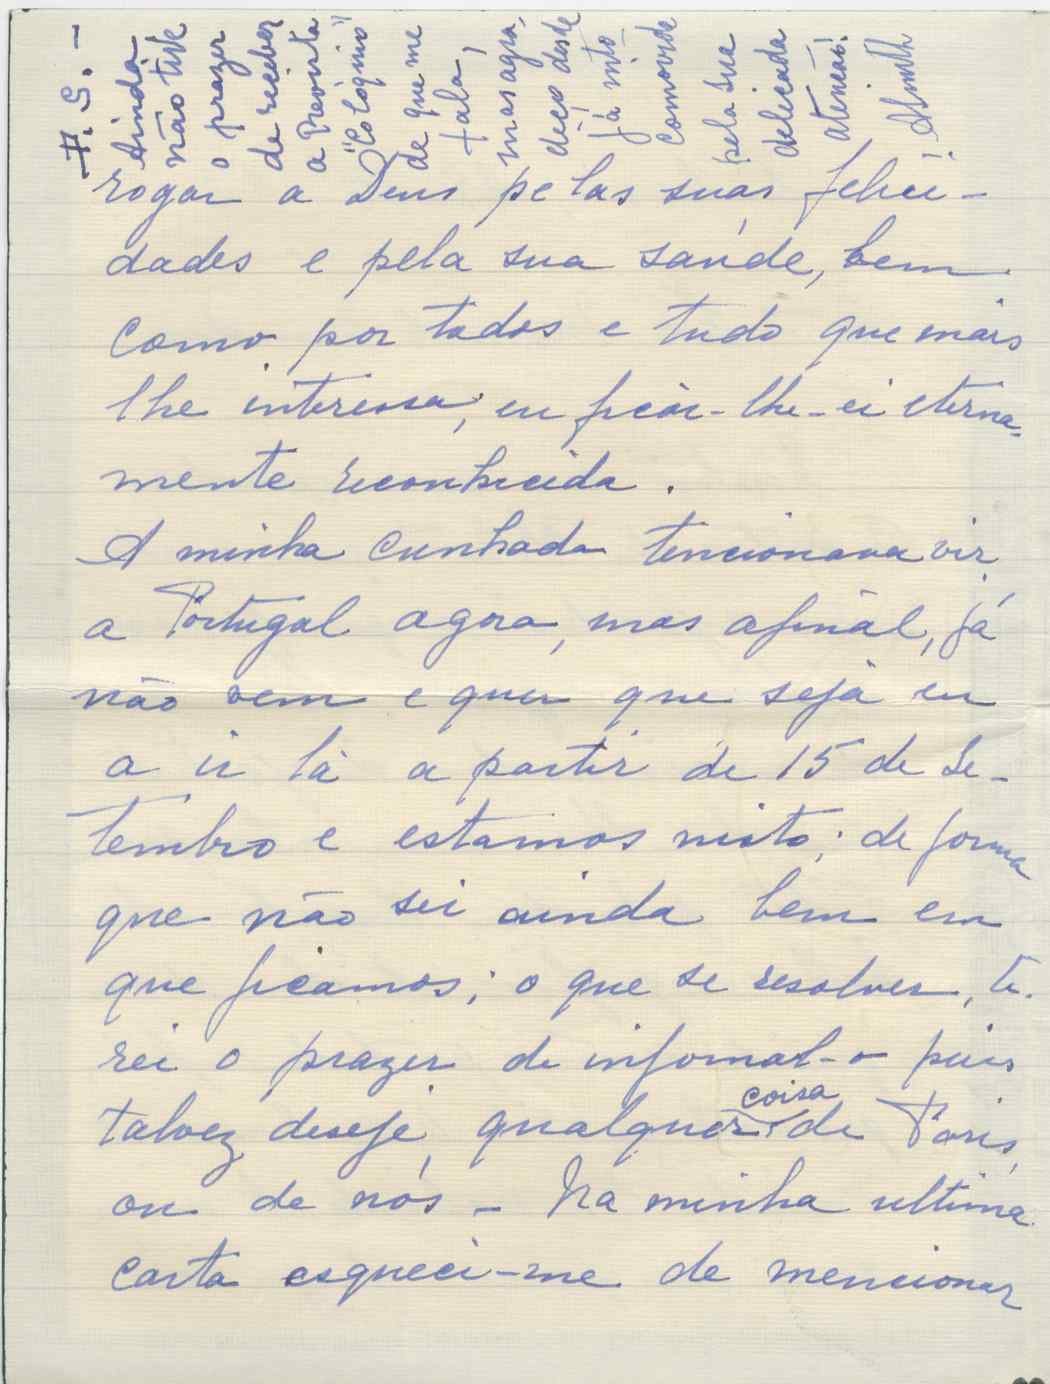 P. S. –
Ainda
não tive
o prazer
de receber
a Revista
"Colóquio"
de que me
fala,
mas agra,
deço desde
já mto
comovida
pela sua
delicada
atenção!
rogar a Deus pelas suas felici-
dades e pela sua saúde, bem
como por todos e tudo que mais
lhe interessa; eu ficar-lhe-ei eterna-
mente reconhecida.
A minha cunhada tencionava vir
a Portugal agora, mas afinal, já
não vem e quer que seja eu
a ir lá a partir de 15 de Se-
tembro e estamos nisto; de forma
que não sei ainda bem em
que ficamos; o que se resolver, te-
rei o prazer de informal-o pois
talvez deseje qualquer coisa de Paris,
ou de nós – Na minha ultima
carta esqueci-me de mencionar